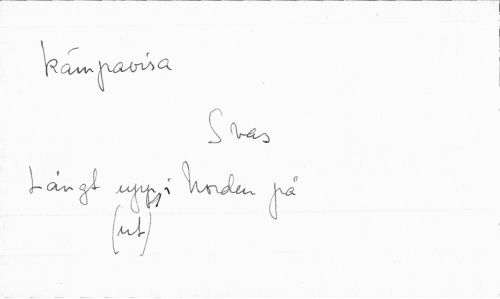 kämpavisa
Svas
Långt upp, i Norden på
(ut)